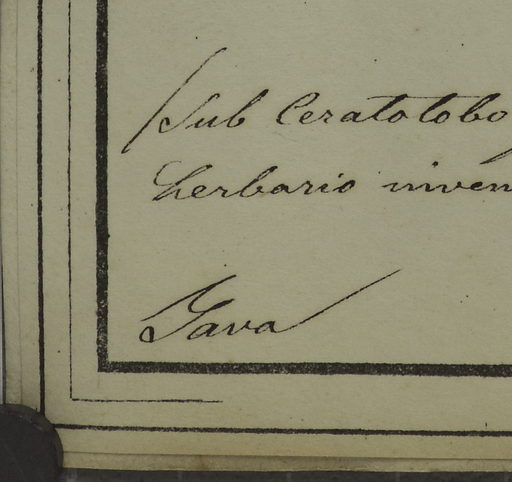 (Sub Ceratolobo
herbario inven
Java